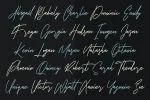 Abigail Blakely Charlie Dominic Emily
Fraya Georgia Hudson Imogen Jason
Levin Logan Macey Natasha Octavia
Phoenix Quincy Robert Sarah Theodore
Victor Wyatt Xavier Yasmin Zoe